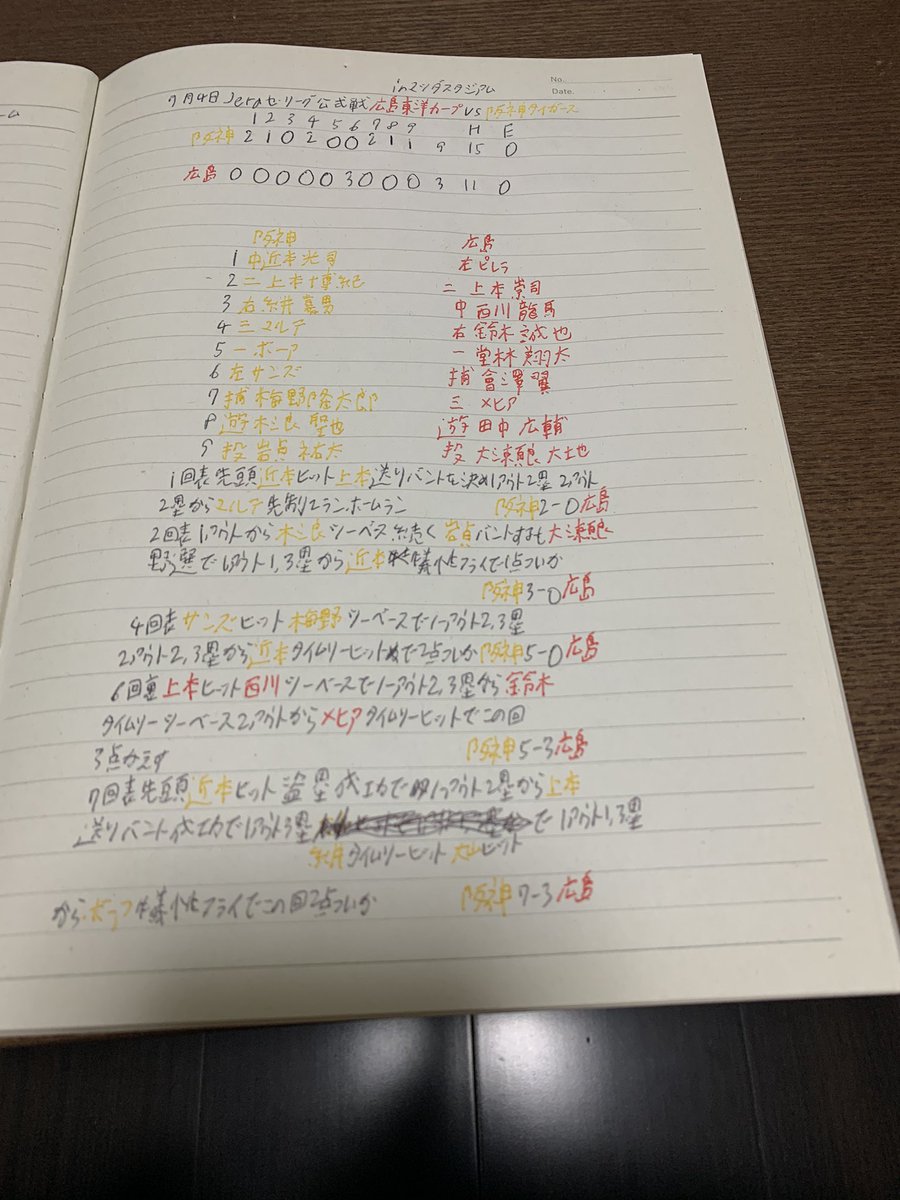 No.
Date.
inマツダスタジアム
9月4日 Jeraセ・リーグ公式戦 広島東洋カープ VS 阪神タイガース
1 2 3 4 5 6 7 8 9 H E
阪神 2 1 0 2 0 0 2 1 1 9 15 0
広島 0 0 0 0 0 3 0 0 0 3 11 0
阪神 広島
1 中 近本光司 左 ピレラ
2 二 上本博紀 二 上本崇司
3 右 糸井嘉男 中 西川龍馬
4 三 マルテ 右 鈴木誠也
5 一 ボーア 一 堂林翔太
6 左 サンズ 捕 會澤翼
7 捕 梅野隆太郎 三 メヒア
8 遊 木浪聖也 遊 田中広輔
9 投 岩貞祐太 投 大瀬良大地
1回表先頭近本ヒット上本送りバントを決め1アウト2塁 2アウト
2塁からマルテ先制2ランホームラン 阪神2-0広島
2回表1アウトから木浪ツーベス続く岩貞バントするも大瀬良
野選で1アウト1,3塁から近本犠牲フライで1点ついか
阪神3-0広島
4回表サンズヒット梅野ツーベースでノーアウト2,3塁
2アウト2,3塁から近本タイムリーヒットで2点ついか 阪神5-0広島
6回裏上本ヒット西川ツーベースでノーアウト2,3塁から鈴木
タイムリーツーベース2アウトからメヒアタイムリーヒットでこの回
3点かえす 阪神5-3広島
7回表先頭近本ヒット盗塁成功でノーアウト2塁から上本
送りバント成功で1アウト3塁 で1アウト1,3塁
糸井タイムリーヒット大山ヒット
から 犠牲フライでこの回2点ついか 阪神7-3広島